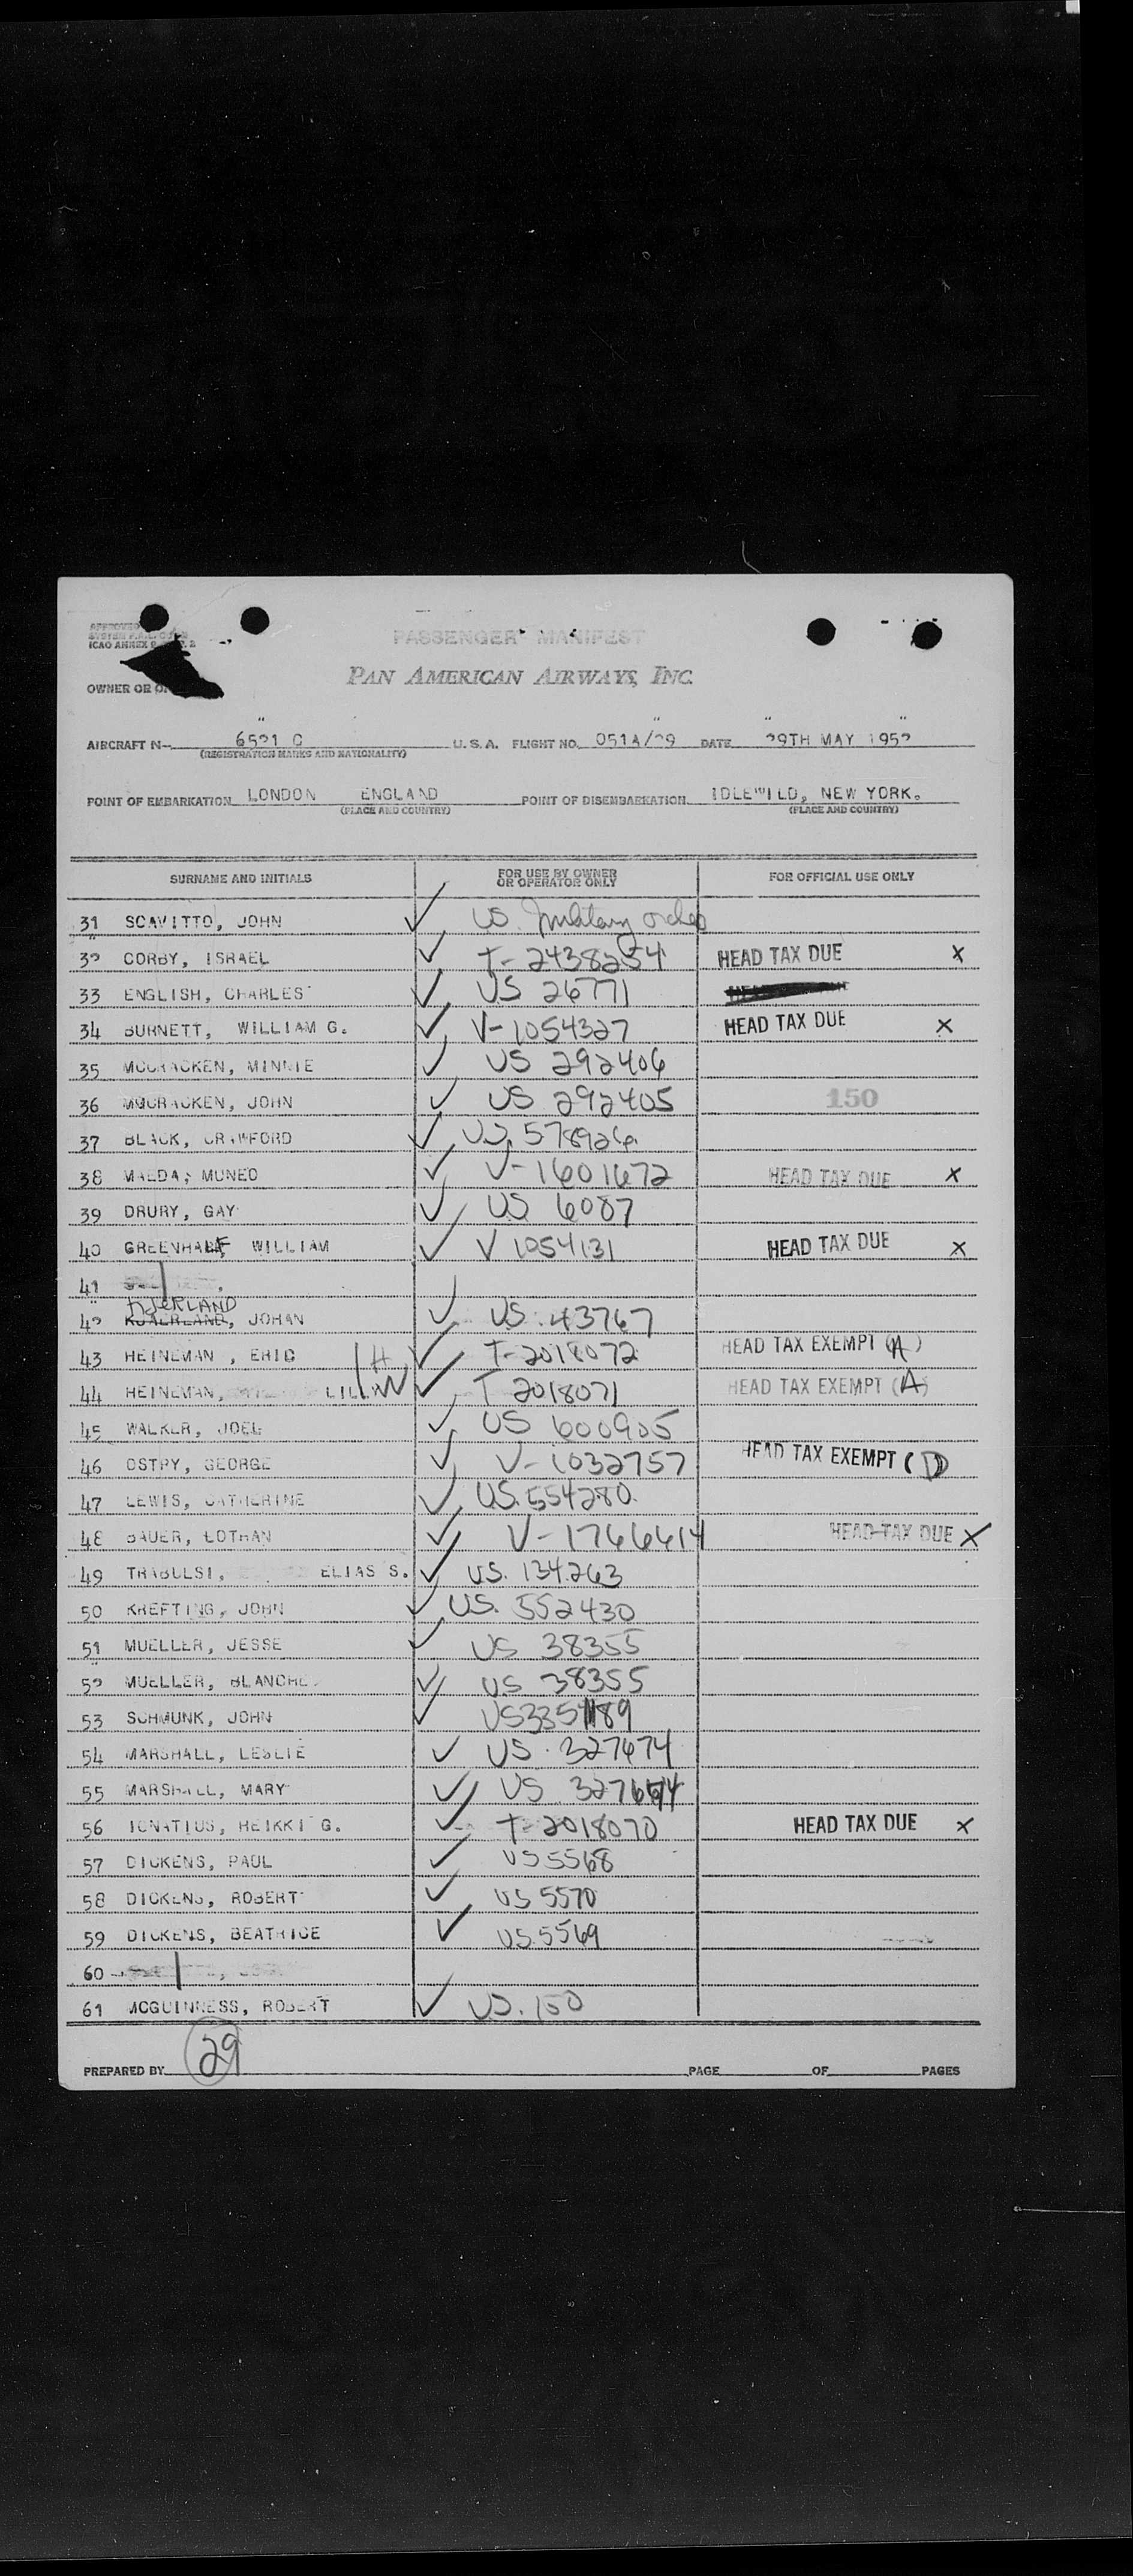 APPROVED
ICAO ANNEX 9
PASSENGER MANIFEST
PAN AMERICAN AIRWAYS, INC.
OWNER OR
AIRCRAFT N— 6521 C U.S.A. FLIGHT NO. 051A/29 DATE 29TH MAY 1952
(REGISTRATION MARKS AND NATIONALITY)
POINT OF EMBARKATION LONDON ENGLAND POINT OF DISEMBARKATION IDLEWILD, NEW YORK.
(PLACE AND COUNTRY) (PLACE AND COUNTRY)
SURNAME AND INITIALS FOR USE BY OWNER OR OPERATOR ONLY FOR OFFICIAL USE ONLY
31 SCAVITTO, JOHN ✓ US. military orders
32 CORBY, ISRAEL ✓ T-2438254 HEAD TAX DUE X
33 ENGLISH, CHARLES ✓ US 26771
34 BURNETT, WILLIAM G. ✓ V-1054327 HEAD TAX DUE X
35 MCCRACKEN, MINNIE ✓ US 292406
36 MCCRACKEN, JOHN ✓ US 292405 150
37 BLACK, CRAWFORD ✓ US. 578926
38 MAEDA, MUNEO ✓ V-1601672 HEAD TAX DUE X
39 DRURY, GAY ✓ US 6087
40 GREENHALF, WILLIAM ✓ V 1054131 HEAD TAX DUE X
41
HJERLAND
42 KJAERLAND, JOHAN ✓ US. 43767
43 HEINEMAN, ERIC H ✓ T-2018072 HEAD TAX EXEMPT (A)
44 HEINEMAN, LILIAN W ✓ T 2018071 HEAD TAX EXEMPT (A)
45 WALKER, JOEL ✓ US 600905
46 OSTRY, GEORGE ✓ V-1032757 HEAD TAX EXEMPT (D)
47 LEWIS, CATHERINE ✓ US. 554280
48 BAUER, LOTHAN ✓ V-1766614 HEAD TAX DUE X
49 TRABULSI, ELIAS S. ✓ US. 134263
50 KREFTING, JOHN ✓ US. 552430
51 MUELLER, JESSE ✓ US 38355
52 MUELLER, BLANCHE ✓ US 38355
53 SCHMUNK, JOHN ✓
54 MARSHALL, LESLIE ✓ US. 327674
55 MARSHALL, MARY ✓ US
56 IGNATIUS, HEIKKI G. ✓ T-2018070 HEAD TAX DUE X
57 DICKENS, PAUL ✓ US 5568
58 DICKENS, ROBERT ✓ US 5570
59 DICKENS, BEATRICE ✓ US. 5569
60
61 MCGUINNESS, ROBERT ✓ US. 150
29
PREPARED BY PAGE OF PAGES